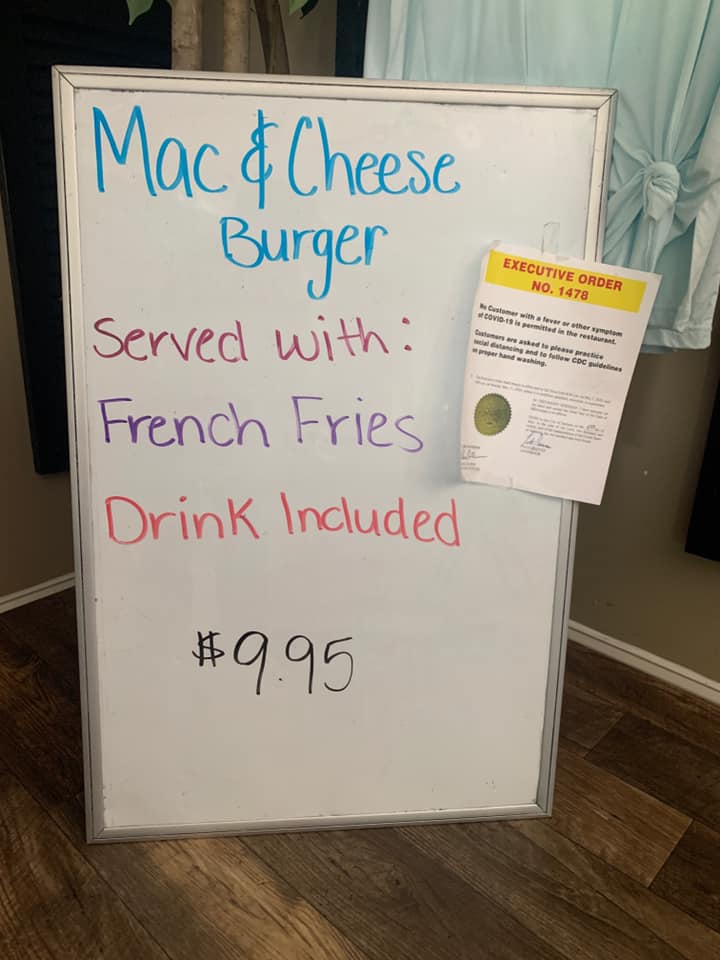 Mac & Cheese
Burger
Served with:
French Fries
Drink Included
$9.95
EXECUTIVE ORDER
NO. 1478
No Customer with a fever or other symptom
of COVID-19 is permitted in the restaurant.
Customers are asked to please practice
social distancing and to follow CDC guidelines
in proper hand washing.